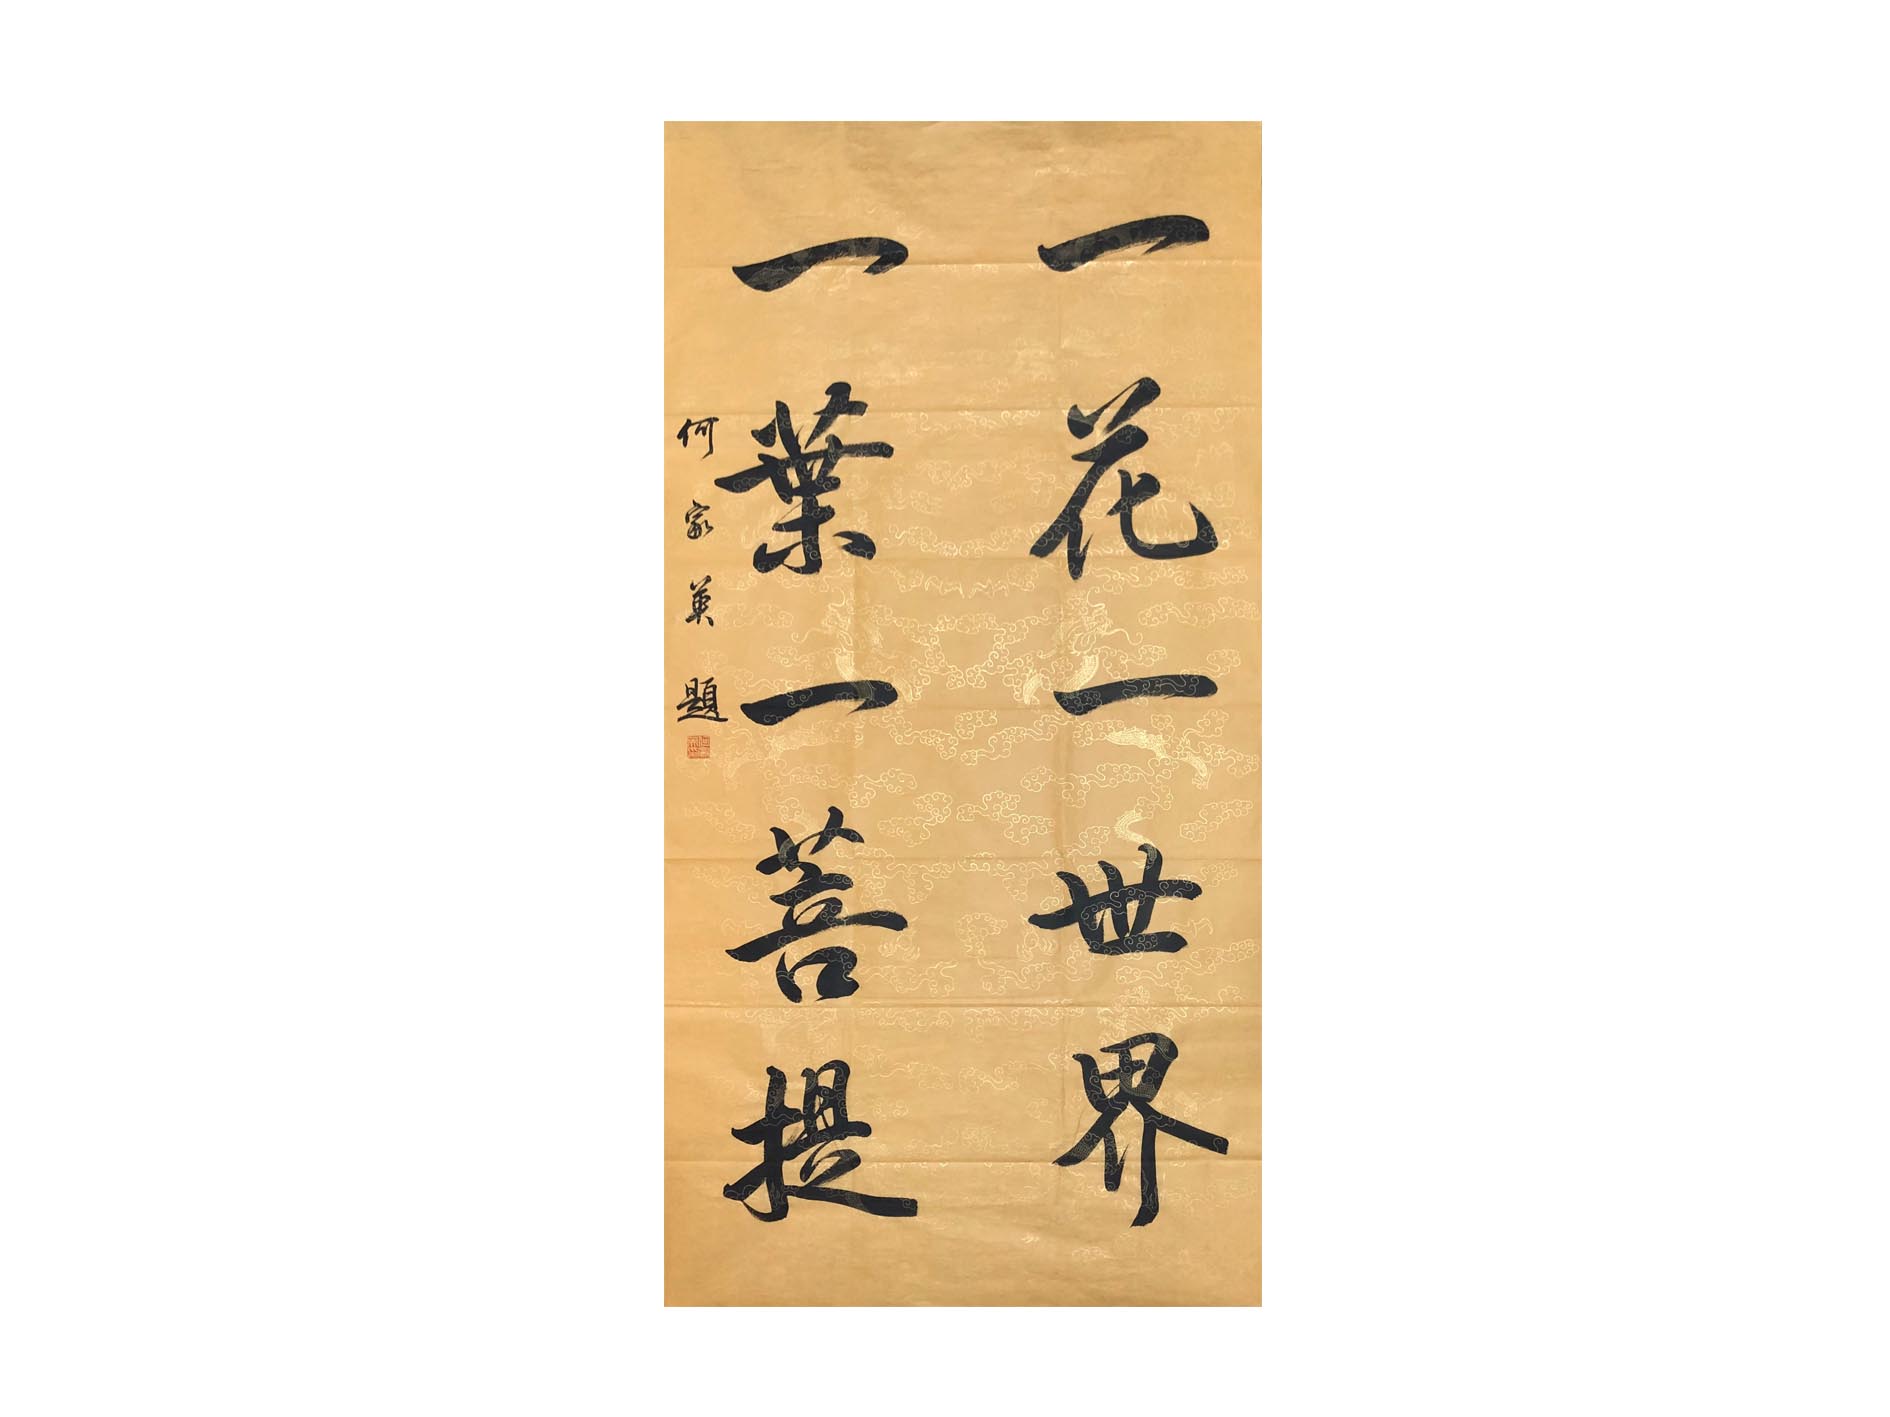 一花一世界
一葉一菩提
何家英題